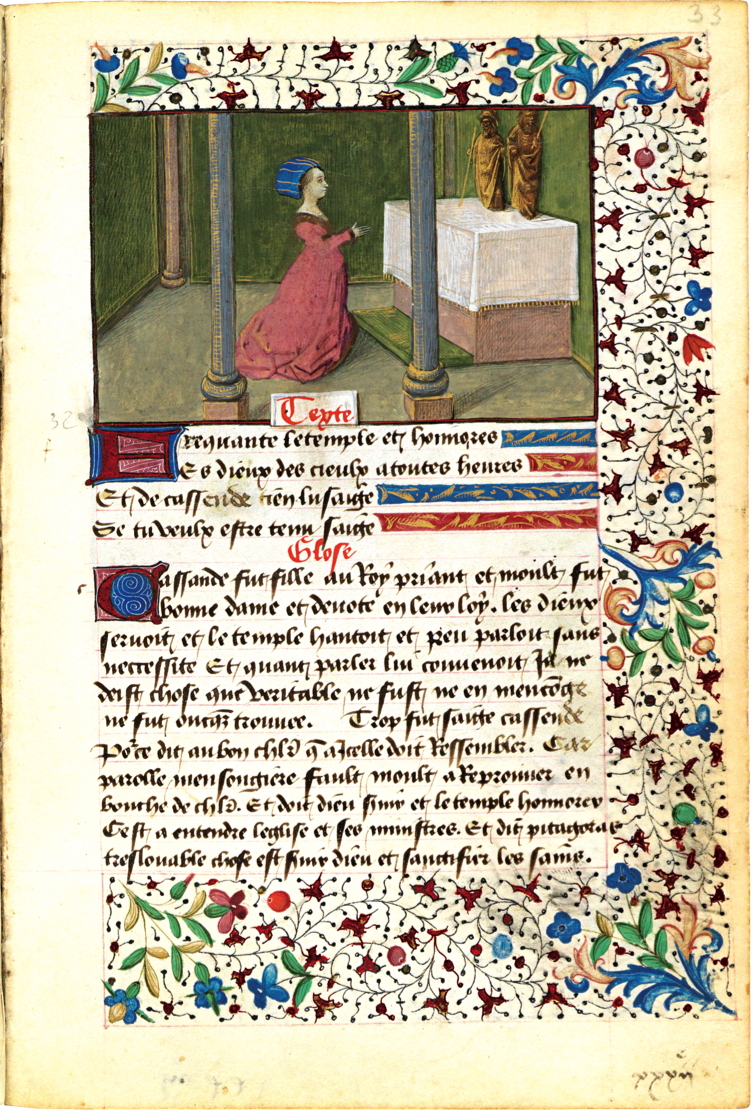 33
Texte
32
Frequante le temple et honnores
Es dieux des cieulx a toutes heures
Et de cassende tien lusaige
Se tu veulx estre tenu saige
Glose
Cassande fut fille au Roy priant et moult fut
bonne dame et devote en leur loy. les dieux
servoit et le temple hantoit et peu parloit sans
necessite Et quant parler lui convenoit Ja ne
deist chose que veritable ne fust ne en mencoge
ne fut oncqs trouvee. Trop fut saige cassende
Po'ce dit au bon chlr q a Icelle doit Ressembler. Car
parolle mensongiere fault moult a Reprouver en
bouche de chlr. Et doit dieu s'vir et le temple honnorer
Cest a entendre leglise et ses ministres. Et dit pitagoras
treslouable chose est s'vir dieu et sanctifier les sains.